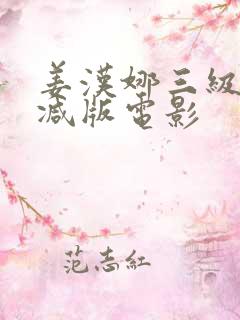 姜漢娜三級
减版電影
范志紅